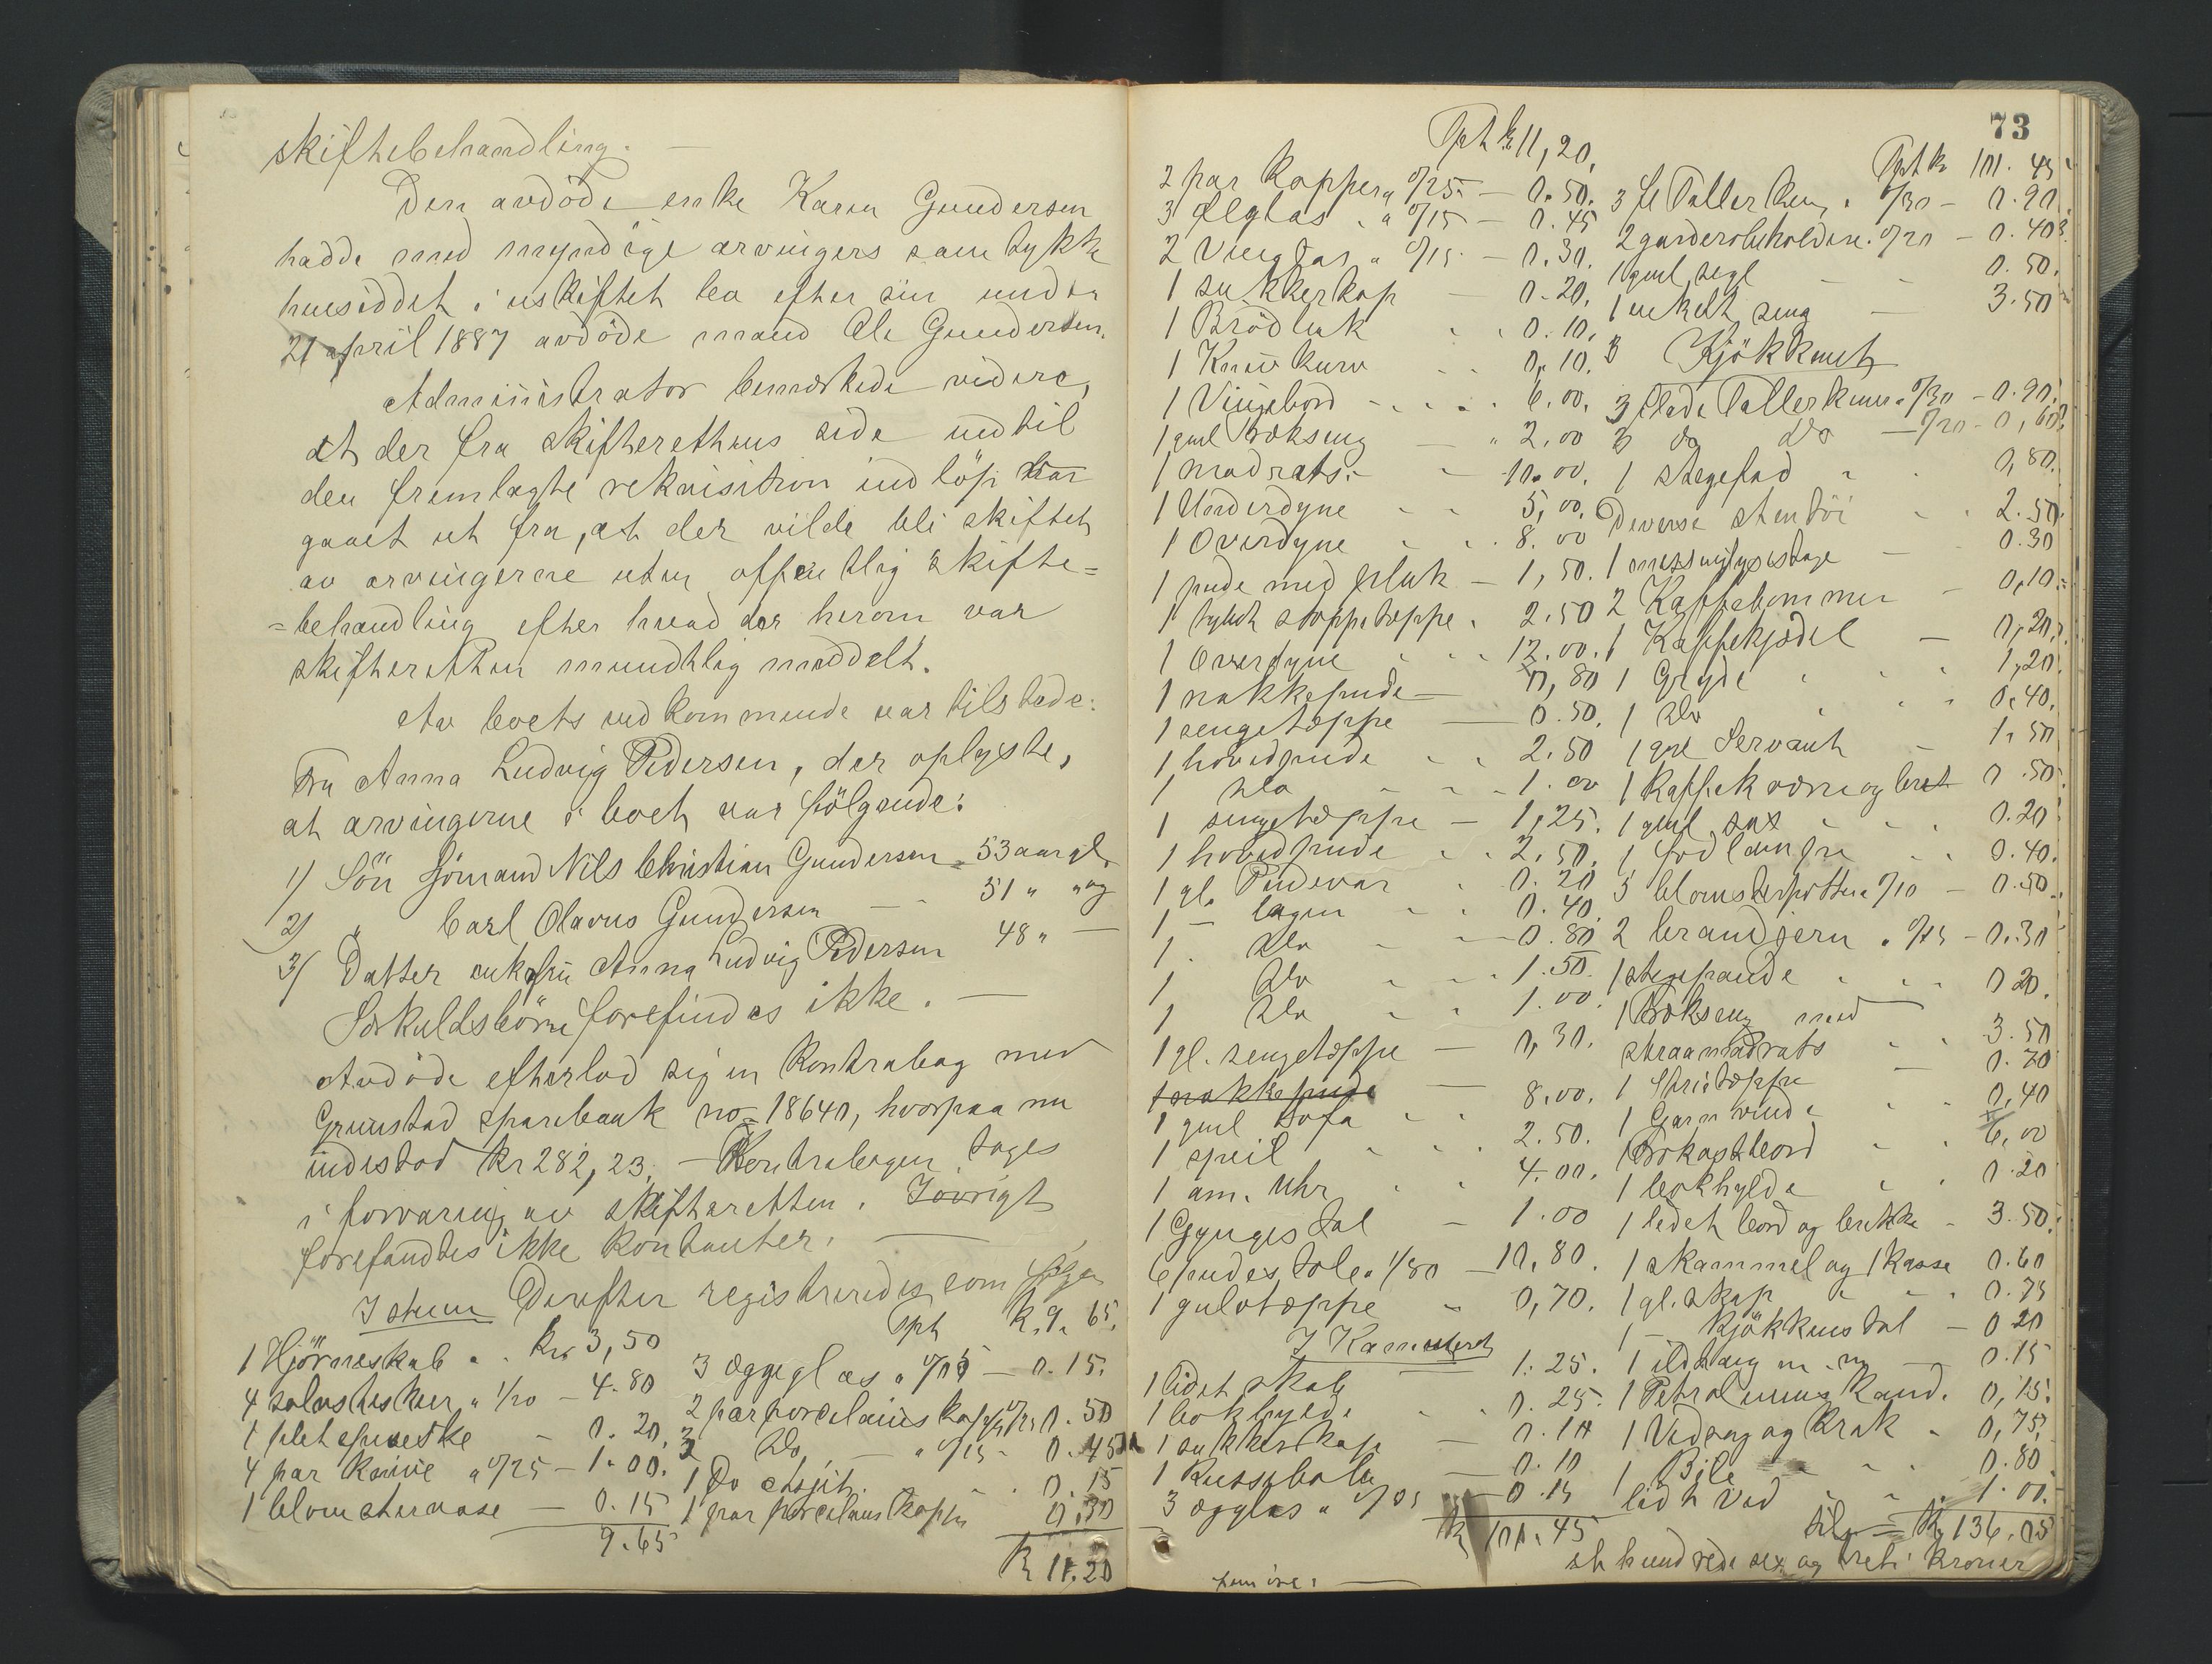 skiftebehandling. —
Den avdöde enke Karen Gundersen
hadde med myndige arvingers samtykke
hensiddet i uskiftet bo efter sin under
21 april 1887 avdöde mand Ole Gundersen.
Administrator bemerkede videre,
at der fra skifterettens side indtil
den fremlagte rekvisition indlöp har
gaaet ut fra, at der vilde bli skiftet
av arvingerne uten offentlig skifte=
=behandling efter hvad der herom var
skifteretten mundtlig meddelt.
Av boets vedkommende var tilstede:
Fru Anna Ludvig Pedersen, der oplyste,
at arvingerne i boet var fölgende:
1) Sön Sjömand Nils Christian Gundersen 53 aar gl.
2) " Carl Olavus Gundersen — 51 " " og
3) Datter enkefru Anna Ludvig Pedersen 48 " —
Særkuldsbörn forefindes ikke. —
Avdöde efterlod sig en Kontrabog med
Grimstad sparebank no 18640, hvorpaa nu
indestod kr 282,23. — Kontrabogen tages
i forvaring av skifteretten. Iövrigt
forefandtes ikke kontanter. —
I stuen Derefter registreredes som fölger
1 Hjörneskab " . kr. 3,50
4 sölvteskeer " 1/20 — 4.80
1 plet spiseske — 0.20
4 par knive " 0/25 — 1.00.
1 blomstervase — 0.15
9.65
Tpt kr. 9.65.
3 æggeglas " 0/05 — 0.15.
2 par porcelainskopper 0/25 0.50
3 Do " 0/15 — 0.45
1 Do Asjet . . 0.15
1 par porcelænskopper 0.30
kr 11.20
73
Tpt kr 11,20.
2 par kopper " 0/25 — 0.50.
3 Ølglas . " 0/15 — 0.45
2 Vinglas " 0/15 — 0.30.
1 sukkerkop — 0.20.
1 Brödbak . . 0.10.
1 Knivkurv . . 0.10.
1 Vingebord - . . . 6.00.
1 gml Trækseng — " 2.00
1 madrats. — 10.00.
1 Underdyne . . 5,00.
1 Overdyne . . . 8.00
1 pude med pluk — 1,50.
1 tykt stoppeteppe . 2.50
1 Overdyne . . . 12.00.
1 nakkepude — 0,80
1 sengetæppe — 0.50.
1 hovedpude . . 2.50
1 Do - - - 1.00
1 sengetæppe — 1,25.
1 hovedpude . . 2.50.
1 gl. Pudevar . 0.20
1 — lagen . . 0.40.
1 . Do — 0.80
1 Do . . . 1.50.
1 Do . . 1.00.
1 gl. sengetæppe — 0,30.
1 nakkepude
1 gml Sofa — 8.00.
1 speil . . . 2.50.
1 am. Uhr . . 4.00.
1 Gyngestol — 1.00
6 pudestole " 1/80 — 10,80.
1 gulvtæppe " 0,70.
I Kammeret
1 lidet skab — 1.25.
1 bokhylde . . 0.25.
1 sukkerkop — 0.10
1 — 0.10
3 ægglas " 0/05 — 0.15
kr 101.45
Tpt kr 101.45
3 fl Tallerkener . 0/30 — 0.90
2 garderobeholdere. 0/20 — 0.40
1 gml segl — - 0.50.
1 enkelt seng — 3.50
Kjökkenet
3 flade Tallerkener " 0/30 — 0.90.
3 do Do — 0/20 — 0,60
1 stegefad " . 0,80.
Diverse stentöi . . 2.50
1 messinglysestage — 0.30
2 Kaffekommer — 0,10.
1 Kaffekjedel — 0,20.
1 Gryde . . . 1,20.
1 Do . . . 0.40.
1 gml Servant — 1.50
1 Kaffekværn og bret 0.50
1 gml sax . . . 0.20
1 lodlampe . . 0.40.
5 blomsterpotter " 0/10 — 0.50.
2 brandjern " 0/15 — 0.30
1 stegepande . . . 0.20.
1 Trækseng med
straamadrats . . 3.50
1 Strietæppe — 0.70
1 Garnvinde . . 0,40
Frokostbord . . 6,00
1 bokhylde . . 0.20
1 lidet bord og brikke - 3.50.
1 skammel og 1 kasse 0.60
1 gl. skap " . . 0.75
1 — kjökkenstol — 0.20
1 ildtang m. m — 0.15
1 Petroleumskande. 0,15.
1 Vedsag og Krak . 0,75,
1 Bile " . . 0.80
lidt Ved . . . 1.00.
Tils = kr 136.05
et hundrede sex og treti kroner
fem öre. —